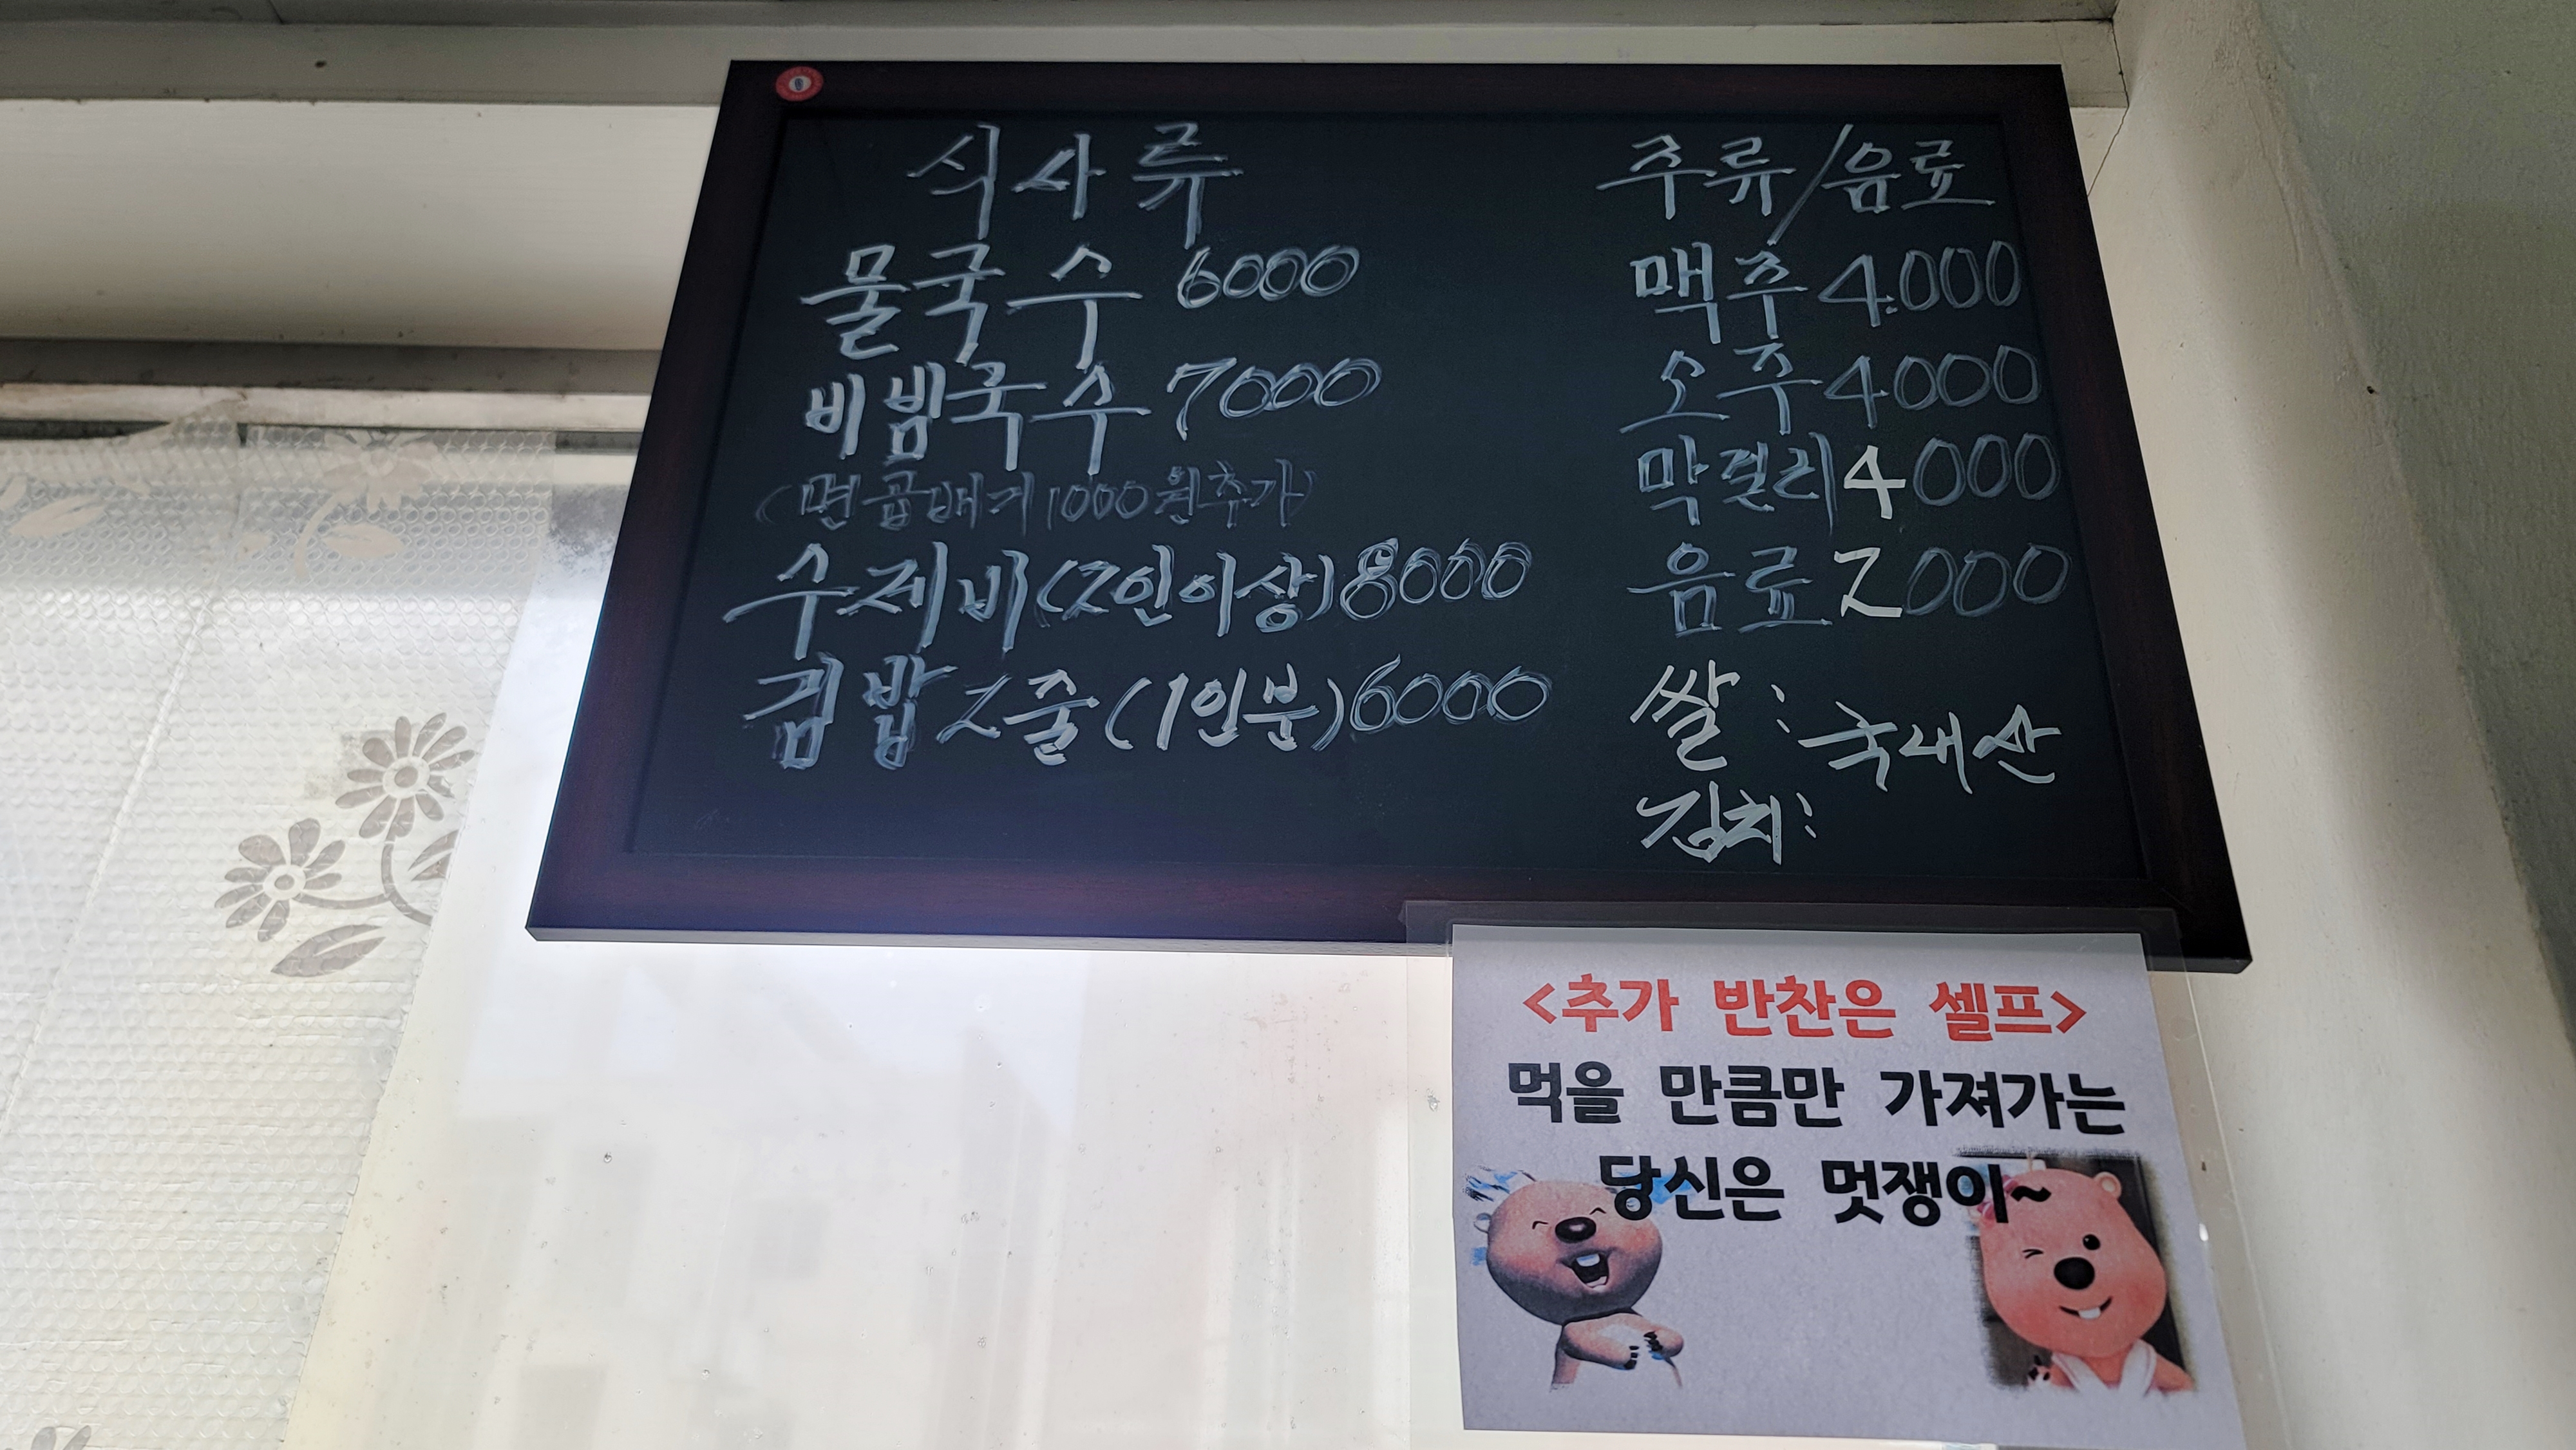 식사류
물국수 6000
비빔국수 7000
(면곱배기 1000원추가)
수제비(2인이상)8000
김밥2줄(1인분)6000
주류/음료
맥주 4.000
소주 4000
막걸리 4000
음료 2000
쌀: 국내산
김치:
<추가 반찬은 셀프>
먹을 만큼만 가져가는
당신은 멋쟁이~